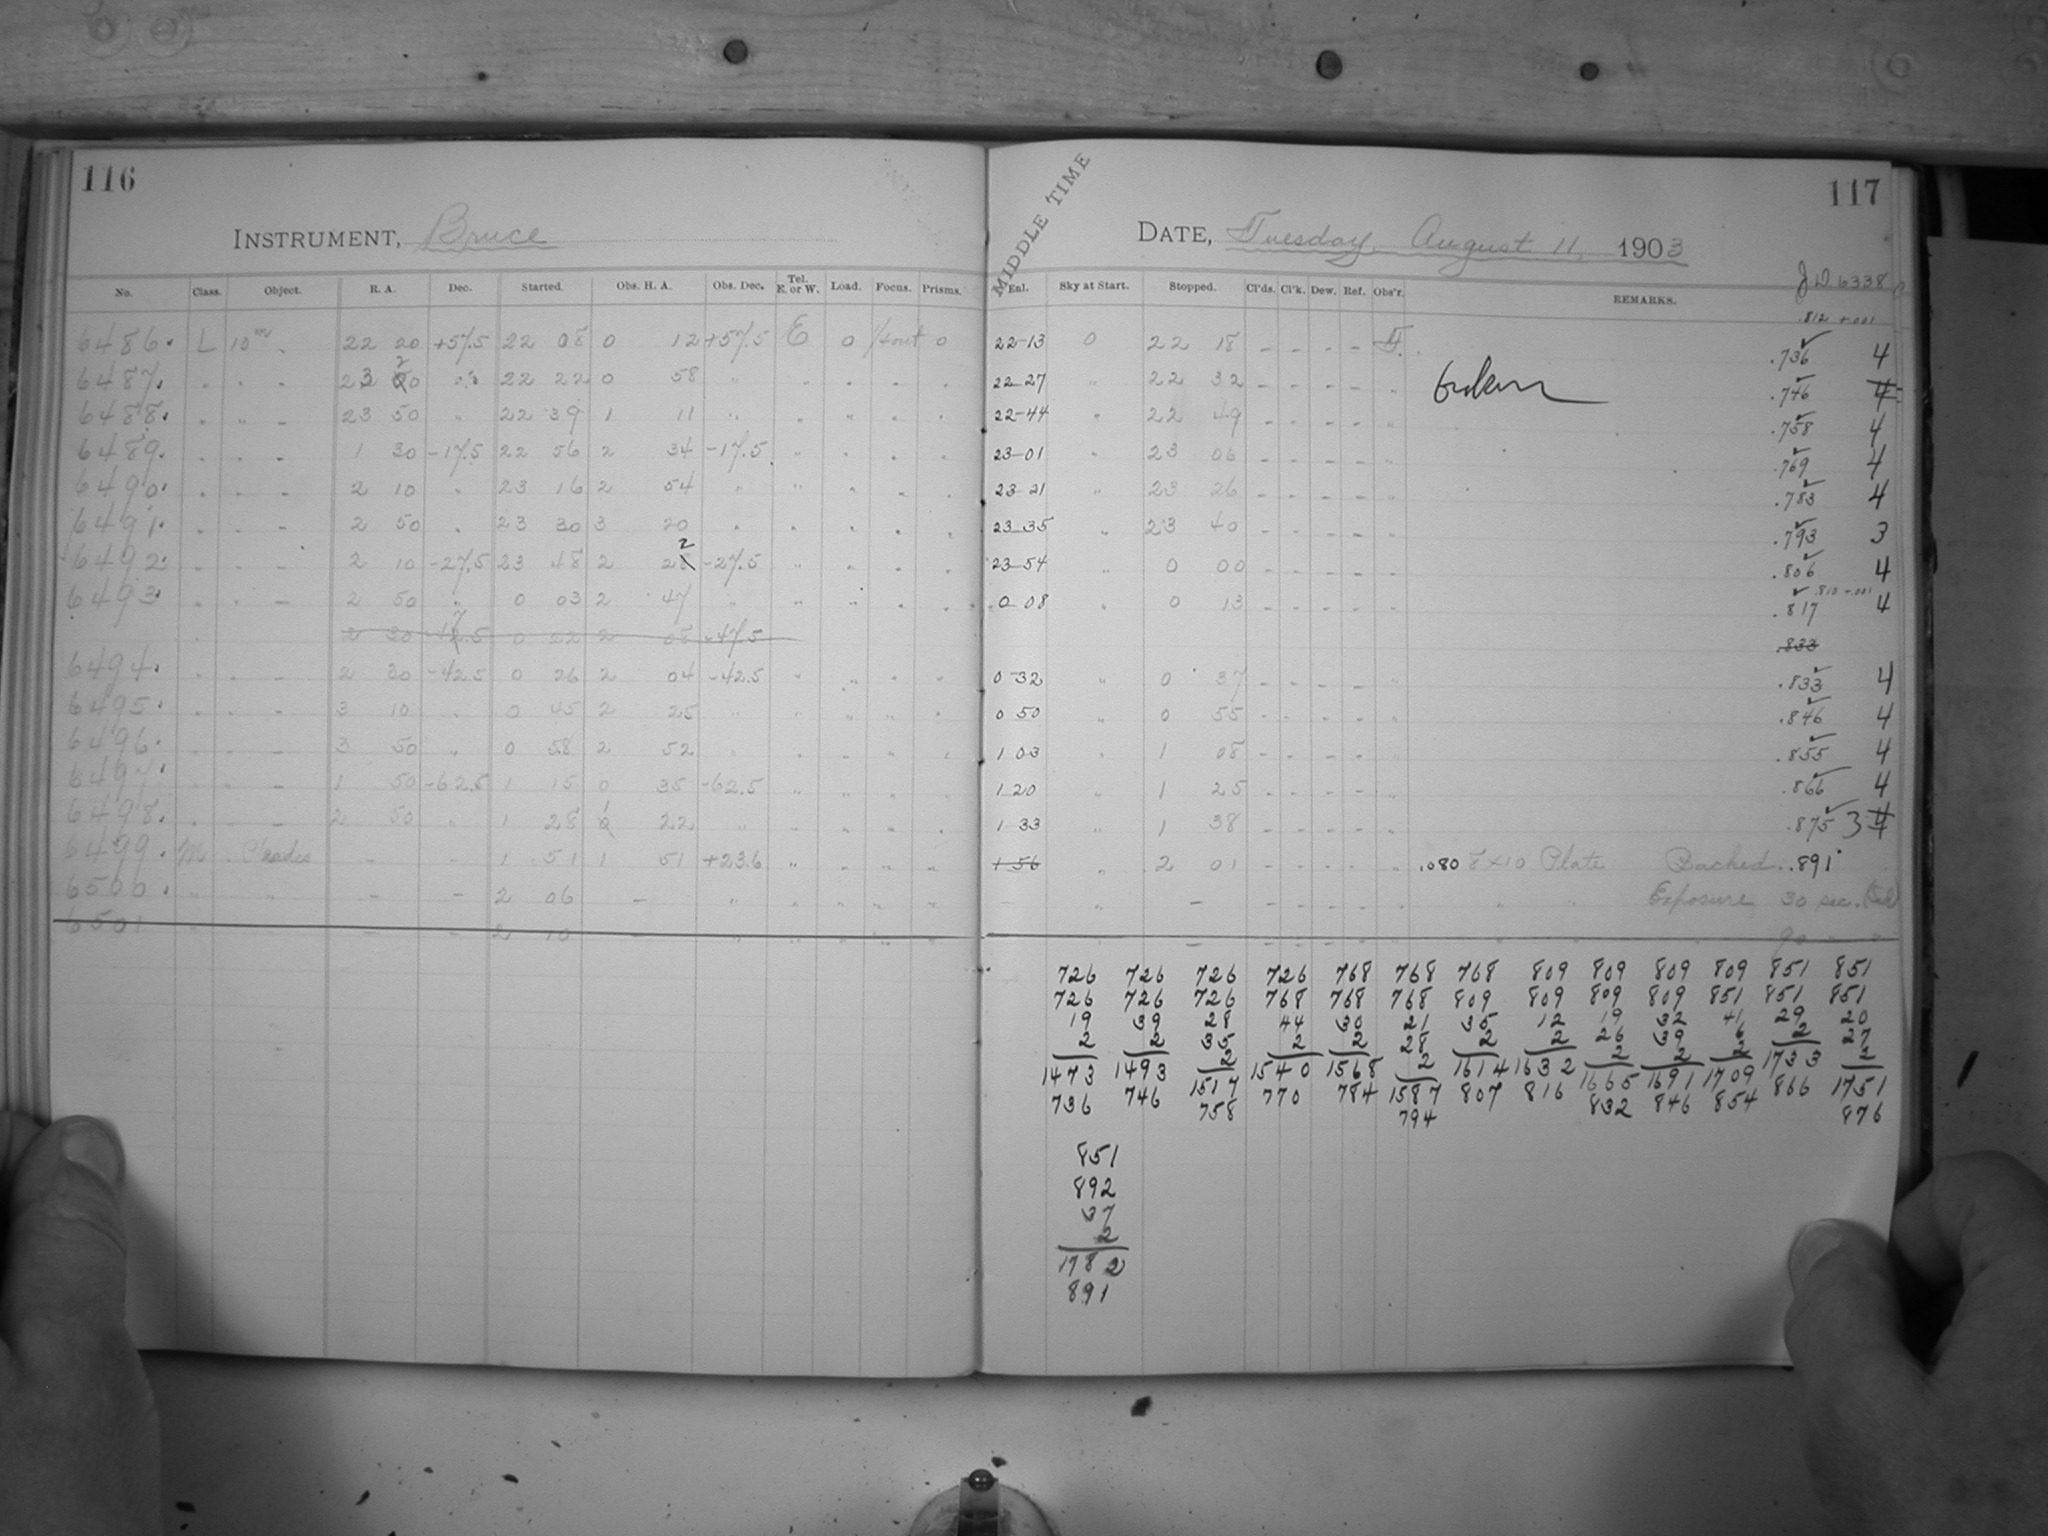 116
INSTRUMENT, Bruce
No. Class. Object. R. A. Dec. Started. Obs. H. A. Obs. Dec. Tel. E. or W. Load. Focus. Prisms.
6486. L 10m 22 20 +57.5 22 08 0 12 +57.5 E 0 1/4 out 0
6487. 22 22 0 58
6488. 23 50 " 22 39 1 11 "
6489. 1 30 -17.5 22 56 2 34 -17.5 "
6490. 2 10 " 23 16 2 54 " "
6491. 2 50 " 23 30 3 20 "
6492. 2 10 -27.5 23 48 2 22 -27.5 "
6493. 2 50 " 0 03 2 47 " "
2 30 -47.5 0 22 2 08 -47.5
6494. 2 30 -42.5 0 26 2 04 -42.5 "
6495. 3 10 " 0 45 2 25 " "
6496. 3 50 " 0 58 2 52 " "
6497. 1 50 -62.5 1 15 0 35 -62.5 "
6498. 2 50 " 1 28 1 22 " "
6499. M Pleiades - - 1 51 1 51 +23.6 "
6500. " " - - 2 06 - " "
6501 - - 2 10 - " "
117
MIDDLE TIME
DATE, Tuesday, August 11, 1903
JD 6338
Enl. Sky at Start. Stopped. Cl'ds. Cl'k. Dew. Ref. Obs'r. REMARKS.
.812 +.001
22-13 0 22 18 - - - - .736 4
22-27 " 22 32 - - - - " .746 4
22-44 " 22 49 - - - - " .758 4
23-01 " 23 06 - - - - " .769 4
23 21 " 23 26 - - - - " .783 4
23-35 " 23 40 - - - - " .793 3
23-54 " 0 00 - - - - " .806 4
.810 +.001
0 08 " 0 13 - - - - " .817 4
.833
0-32 " 0 37 - - - - " .833 4
0 50 " 0 55 - - - - " .846 4
1 03 " 1 08 - - - - " .855 4
1 20 " 1 25 - - - - " .866 4
1 33 " 1 38 - - - - " .875 3 4
1 56 " 2 01 - - - - " .080 8 x 10 Plate Backed .891
- " - - - - - " " " Exposure 30 sec.
" - - - - - " " " " 90 " "
726 726 726 726 768 768 768 809 809 809 809 851 851
726 726 726 768 768 768 809 809 809 809 851 851 851
19 39 28 44 30 21 35 12 19 32 41 29 20
2 2 35 2 2 28 2 2 26 39 6 2 27
2 2 2 2 2 2
1473 1493 1517 1540 1568 1587 1614 1632 1665 1691 1709 1733 1751
736 746 758 770 784 794 807 816 832 846 854 866 876
851
892
37
2
1782
891